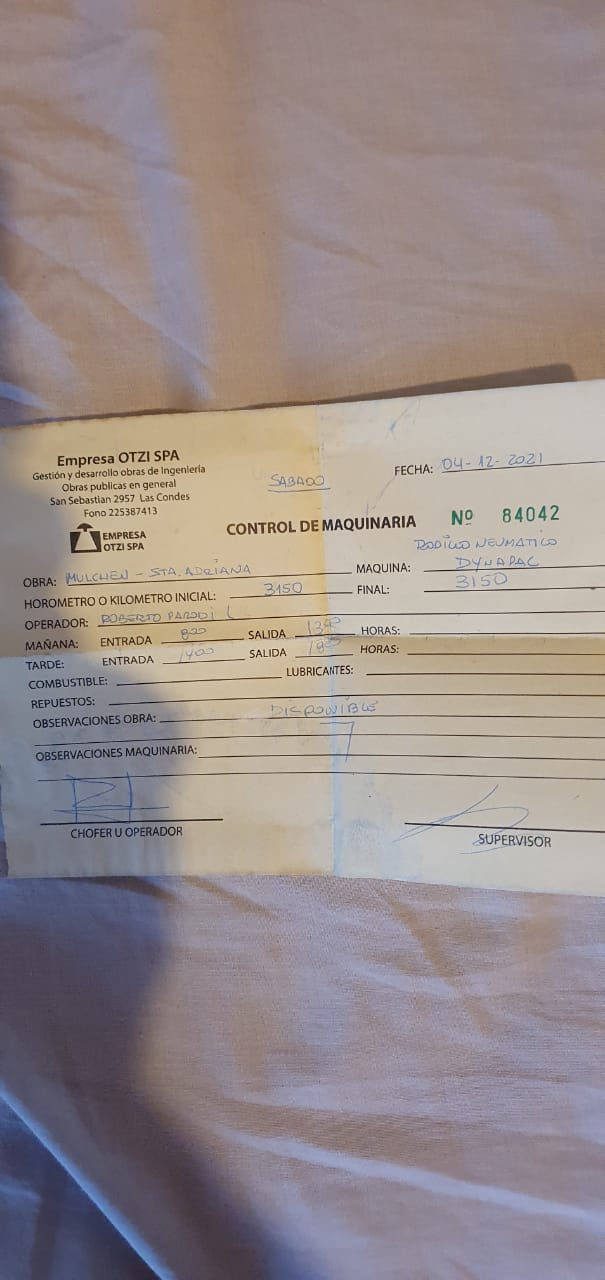 Empresa OTZI SPA
Gestión y desarrollo obras de Ingeniería
Obras publicas en general
San Sebastian 2957 Las Condes
Fono 225387413
EMPRESA
OTZI SPA
SABADO
FECHA: 04-12-2021
CONTROL DE MAQUINARIA Nº 84042
RODILLO NEUMATICO
OBRA: MULCHEN - STA. ADRIANA MAQUINA: DYNAPAC
HOROMETRO O KILOMETRO INICIAL: 3150 FINAL: 3150
OPERADOR: ROBERTO PARODI L
MAÑANA: ENTRADA 800 SALIDA 1300 HORAS:
TARDE: ENTRADA 1400 SALIDA HORAS:
COMBUSTIBLE: LUBRICANTES:
REPUESTOS:
OBSERVACIONES OBRA: DISPONIBLE
OBSERVACIONES MAQUINARIA:
CHOFER U OPERADOR
SUPERVISOR